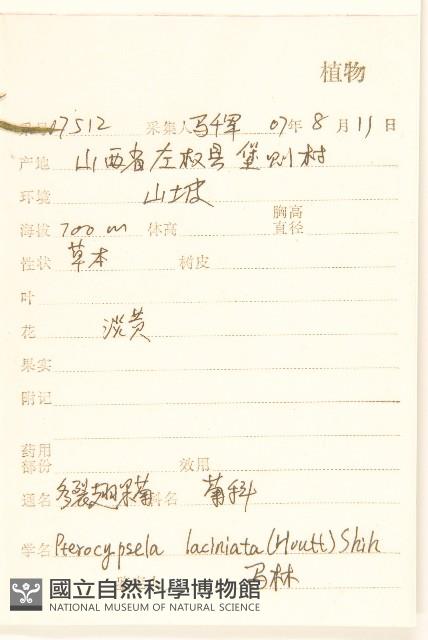 植物
采号 07512 采集人 马千军 07年 8月 11日
产地 山西省左权县堡则村
环境 山坡
胸高
海拔 700m 体高 直径
性状 草本 树皮
叶
花 淡黄
果实
附记
药用
部份 效用
通名 多裂翅果菊 科名 菊科
学名 Pterocypsela laciniata (Houtt) Shih
马林
國立自然科學博物館
NATIONAL MUSEUM OF NATURAL SCIENCE